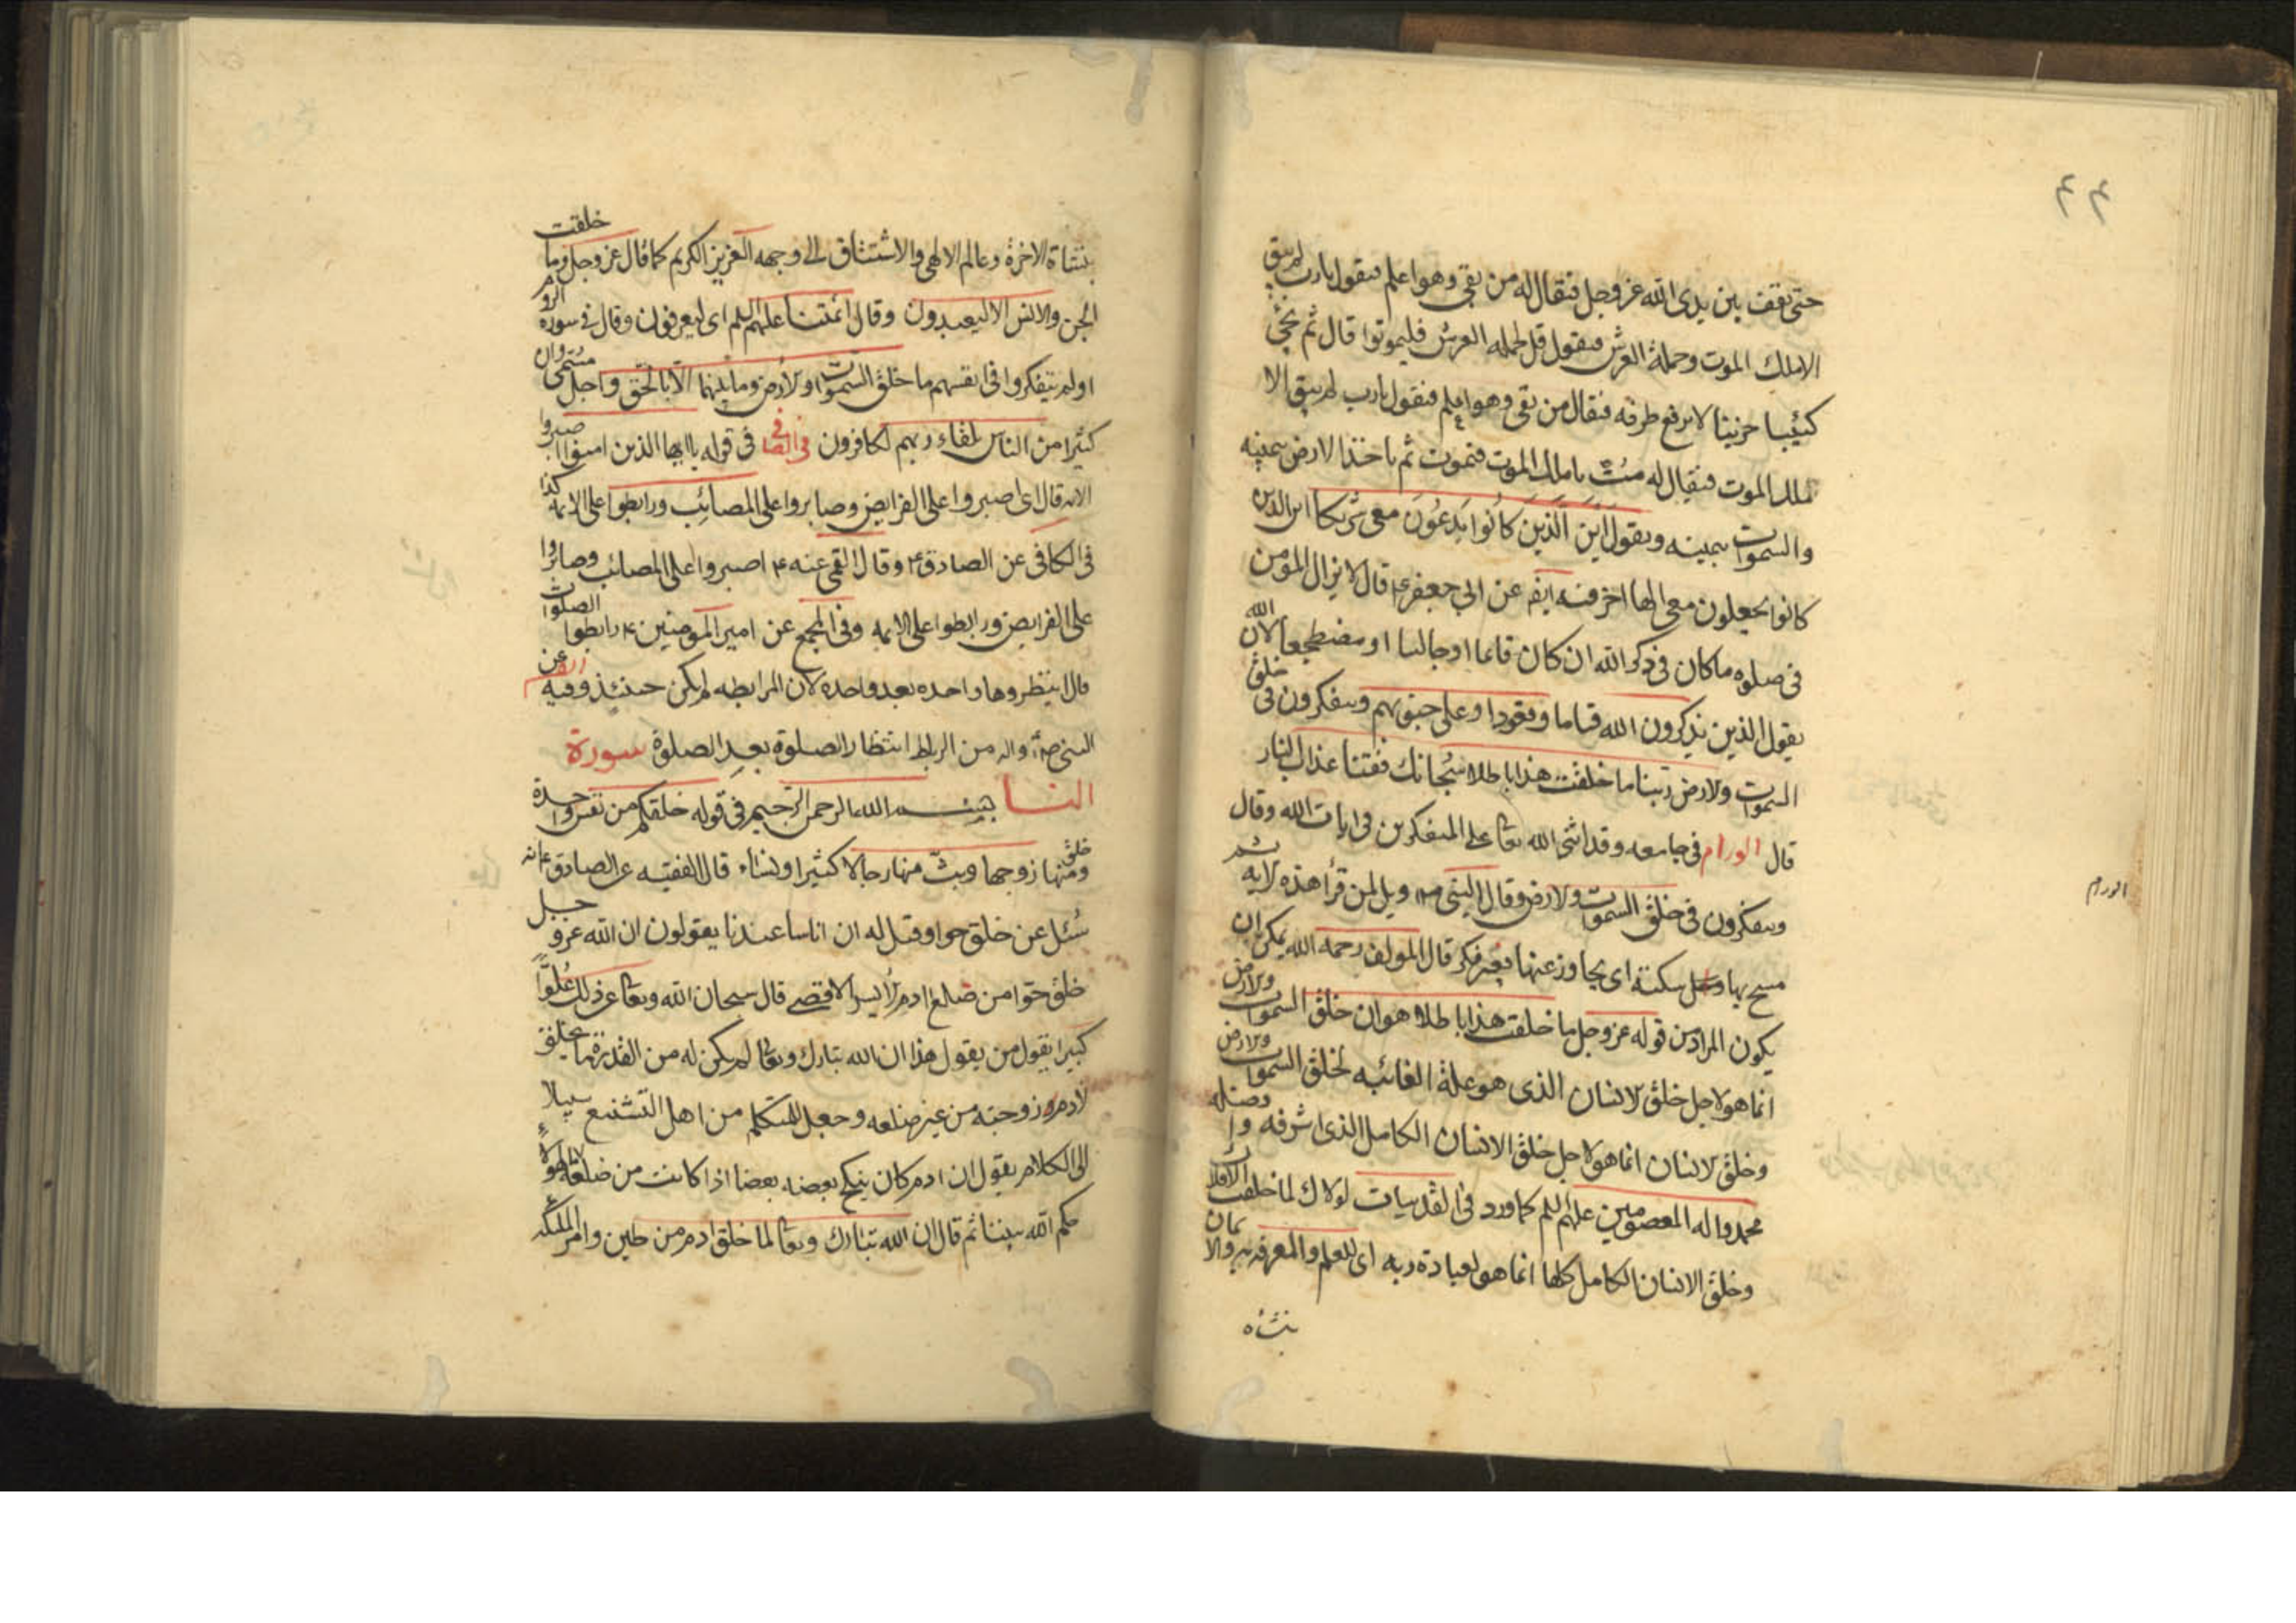 ٤٤
حتى يقف بين يدى الله عز وجل فيقال له من بقى وهو اعلم فيقول يارب لم يبق
الا ملك الموت وحملة العرش فيقول قل لحمله العرش فليموتوا قال ثم يجئ
كئيبا حزينا لا يرفع طرفه فيقال من بقى وهو اعلم فيقول يارب لم يبق الا
ملك الموت فيقال له مت يا ملك الموت فيموت ثم ياخذ الارض بيمينه
والسموات بيمينه ويقول اين الذين كانوا يدعون معى شريكا اين الذين
كانوا يجعلون معى الها اخر فيه ايضا عن ابي جعفر ع قال لا يزال المؤمن
فى صلوه ما كان فى ذكر الله ان كان قائما او جالسا او مضطجعا لان الله
يقول الذين يذكرون الله قياما وقعودا وعلى جنوبهم ويتفكرون فى خلق
السموات ولارض ربنا ما خلقت هذا باطلا سبحانك فقتنا عذاب النار
قال الورام فى جامعه وقد اثنى الله تعا على المتفكرين فى ايات الله وقال
ويتفكرون فى خلق السموات ولارض وقال النبى ص ويل لمن قرأ هذه لايه ثم
مسح بها سبلته اى يجاوز عنها بغير فكر قال المولف رحمه الله يمكن ان
يكون المراد من قوله عز وجل ما خلقت هذا باطلا هو ان خلق السموات ولارض
انما هو لاجل خلق لانسان الذى هو علة الغائيه لخلق السموات ولارض
وخلق لانسان انما هو لاجل خلق الانسان الكامل الذى اشرفه وافضله
محمد واله المعصومين عليهم السلم كما ورد فى القدسيات لولاك لما خلقت الافلاك
وخلق الانسان الكامل كلها انما هو لعبادة ربه اى للعلم والمعرفه به والايمان
بنشاه
الورام
بنشاة الاخرة وعالم الالهى والاشتياق الى وجهه العزيز الكريم كما قال عز وجل وما خلقت
الجن والانس الا ليعبدون وقال ائمتنا عليهم السلم اى ليعرفون وقال فى سوره الروم
اولم يتفكروا فى انفسهم ما خلق السموات ولارض وما بينهما الا بالحق واجل مسمى وان
كثيرا من الناس بلقاء ربهم لكافرون فى الصافى فى قوله يا ايها الذين امنوا اصبروا
الايه قال اى اصبروا على الفرايض وصابروا على المصائب ورابطوا على الايمه كذا
فى الكافى عن الصادق ع وقال القمى عنه ع اصبروا على المصائب وصابروا
على الفرايض ورابطوا على الايمه وفى المجمع عن امير المومنين ع رابطوا الصلوات
قال انتظروها واحده بعد واحده لان المرابطه لم يكن حينئذ وفيه عن
النبى ص واله من الرباط انتظار الصلوة بعد الصلوة سورة
النسا بسم الله الرحمن الرحيم فى قوله خلقكم من نفس واحدة
وخلق منها زوجها وبث منها رجالا كثيرا ونساء قال الفقيه عن الصادق ع انه
سئل عن خلق حوا وقيل له ان اناسا عندنا يقولون ان الله عز وجل
خلق حوا من ضلع ادم الايسر الاقصى قال سبحان الله وتعا عن ذلك علوا
كبيرا يقول من يقول هذا ان الله تبارك وتعا لم يكن له من القدرة ما يخلق
لادم زوجته من غير ضلعه وجعل للمتكلم من اهل التشنيع سبيلا
الى الكلام يقول ان ادم كان ينكح بعضه بعضا اذا كانت من ضلعه ما لهؤلاء
حكم الله بيننا ثم قال ان الله تبارك وتعا لما خلق ادم من طين وامر الملئكه